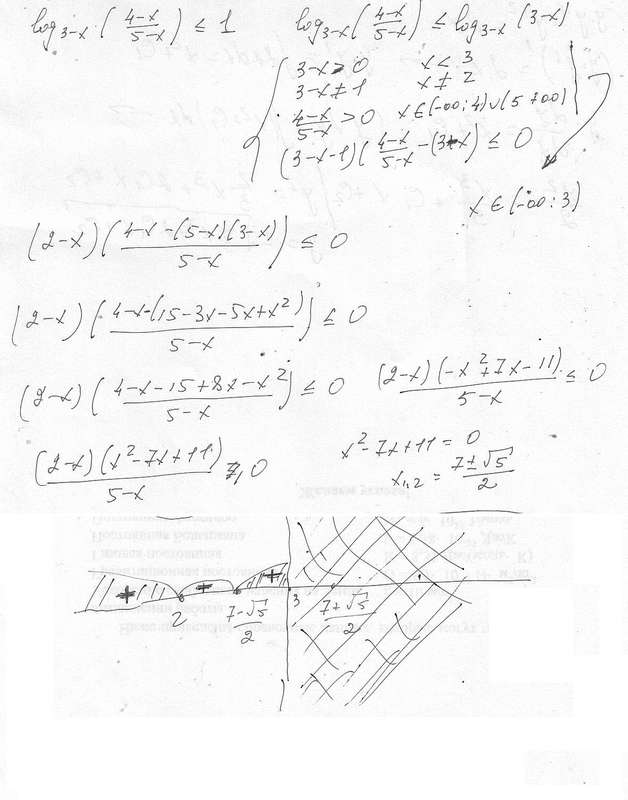 log₃₋ₓ (4-x/5-x) ≤ 1    log₃₋ₓ (4-x/5-x) ≤ log₃₋ₓ (3-x)
3-x>0    x<3
3-x≠1    x≠2
4-x/5-x > 0    x∈(-∞; 4)∪(5 +∞)
(3-x-1)(4-x/5-x -(3-x) ≤ 0
x∈(-∞; 3)
(2-x)(4-x-(5-x)(3-x)/5-x) ≤ 0
(2-x)(4-x-(15-3x-5x+x²)/5-x) ≤ 0
(2-x)(4-x-15+8x-x²/5-x) ≤ 0    (2-x)(-x²+7x-11)/5-x ≤ 0
(2-x)(x²-7x+11)/5-x ≥ 0    x²-7x+11=0
x₁,₂ = 7±√5/2
+ - +
2    7-√5/2    3    7+√5/2